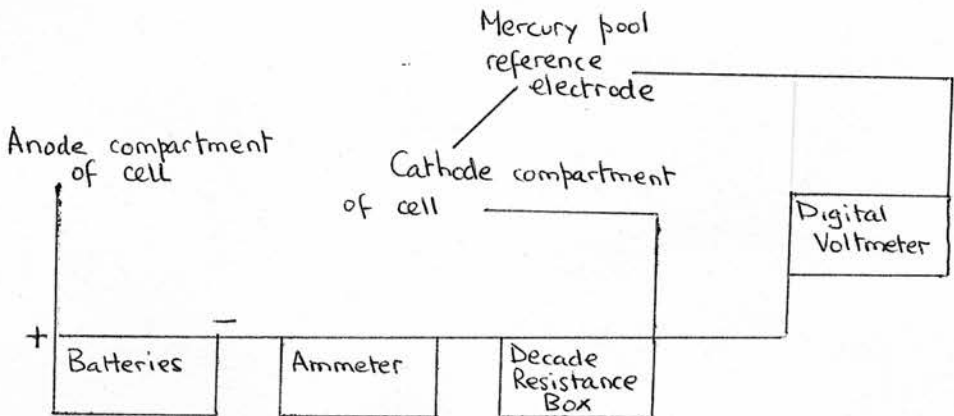 Mercury pool
reference
electrode
Anode compartment
of cell
Cathode compartment
of cell
Digital
Voltmeter
+
−
Batteries
Ammeter
Decade
Resistance
Box